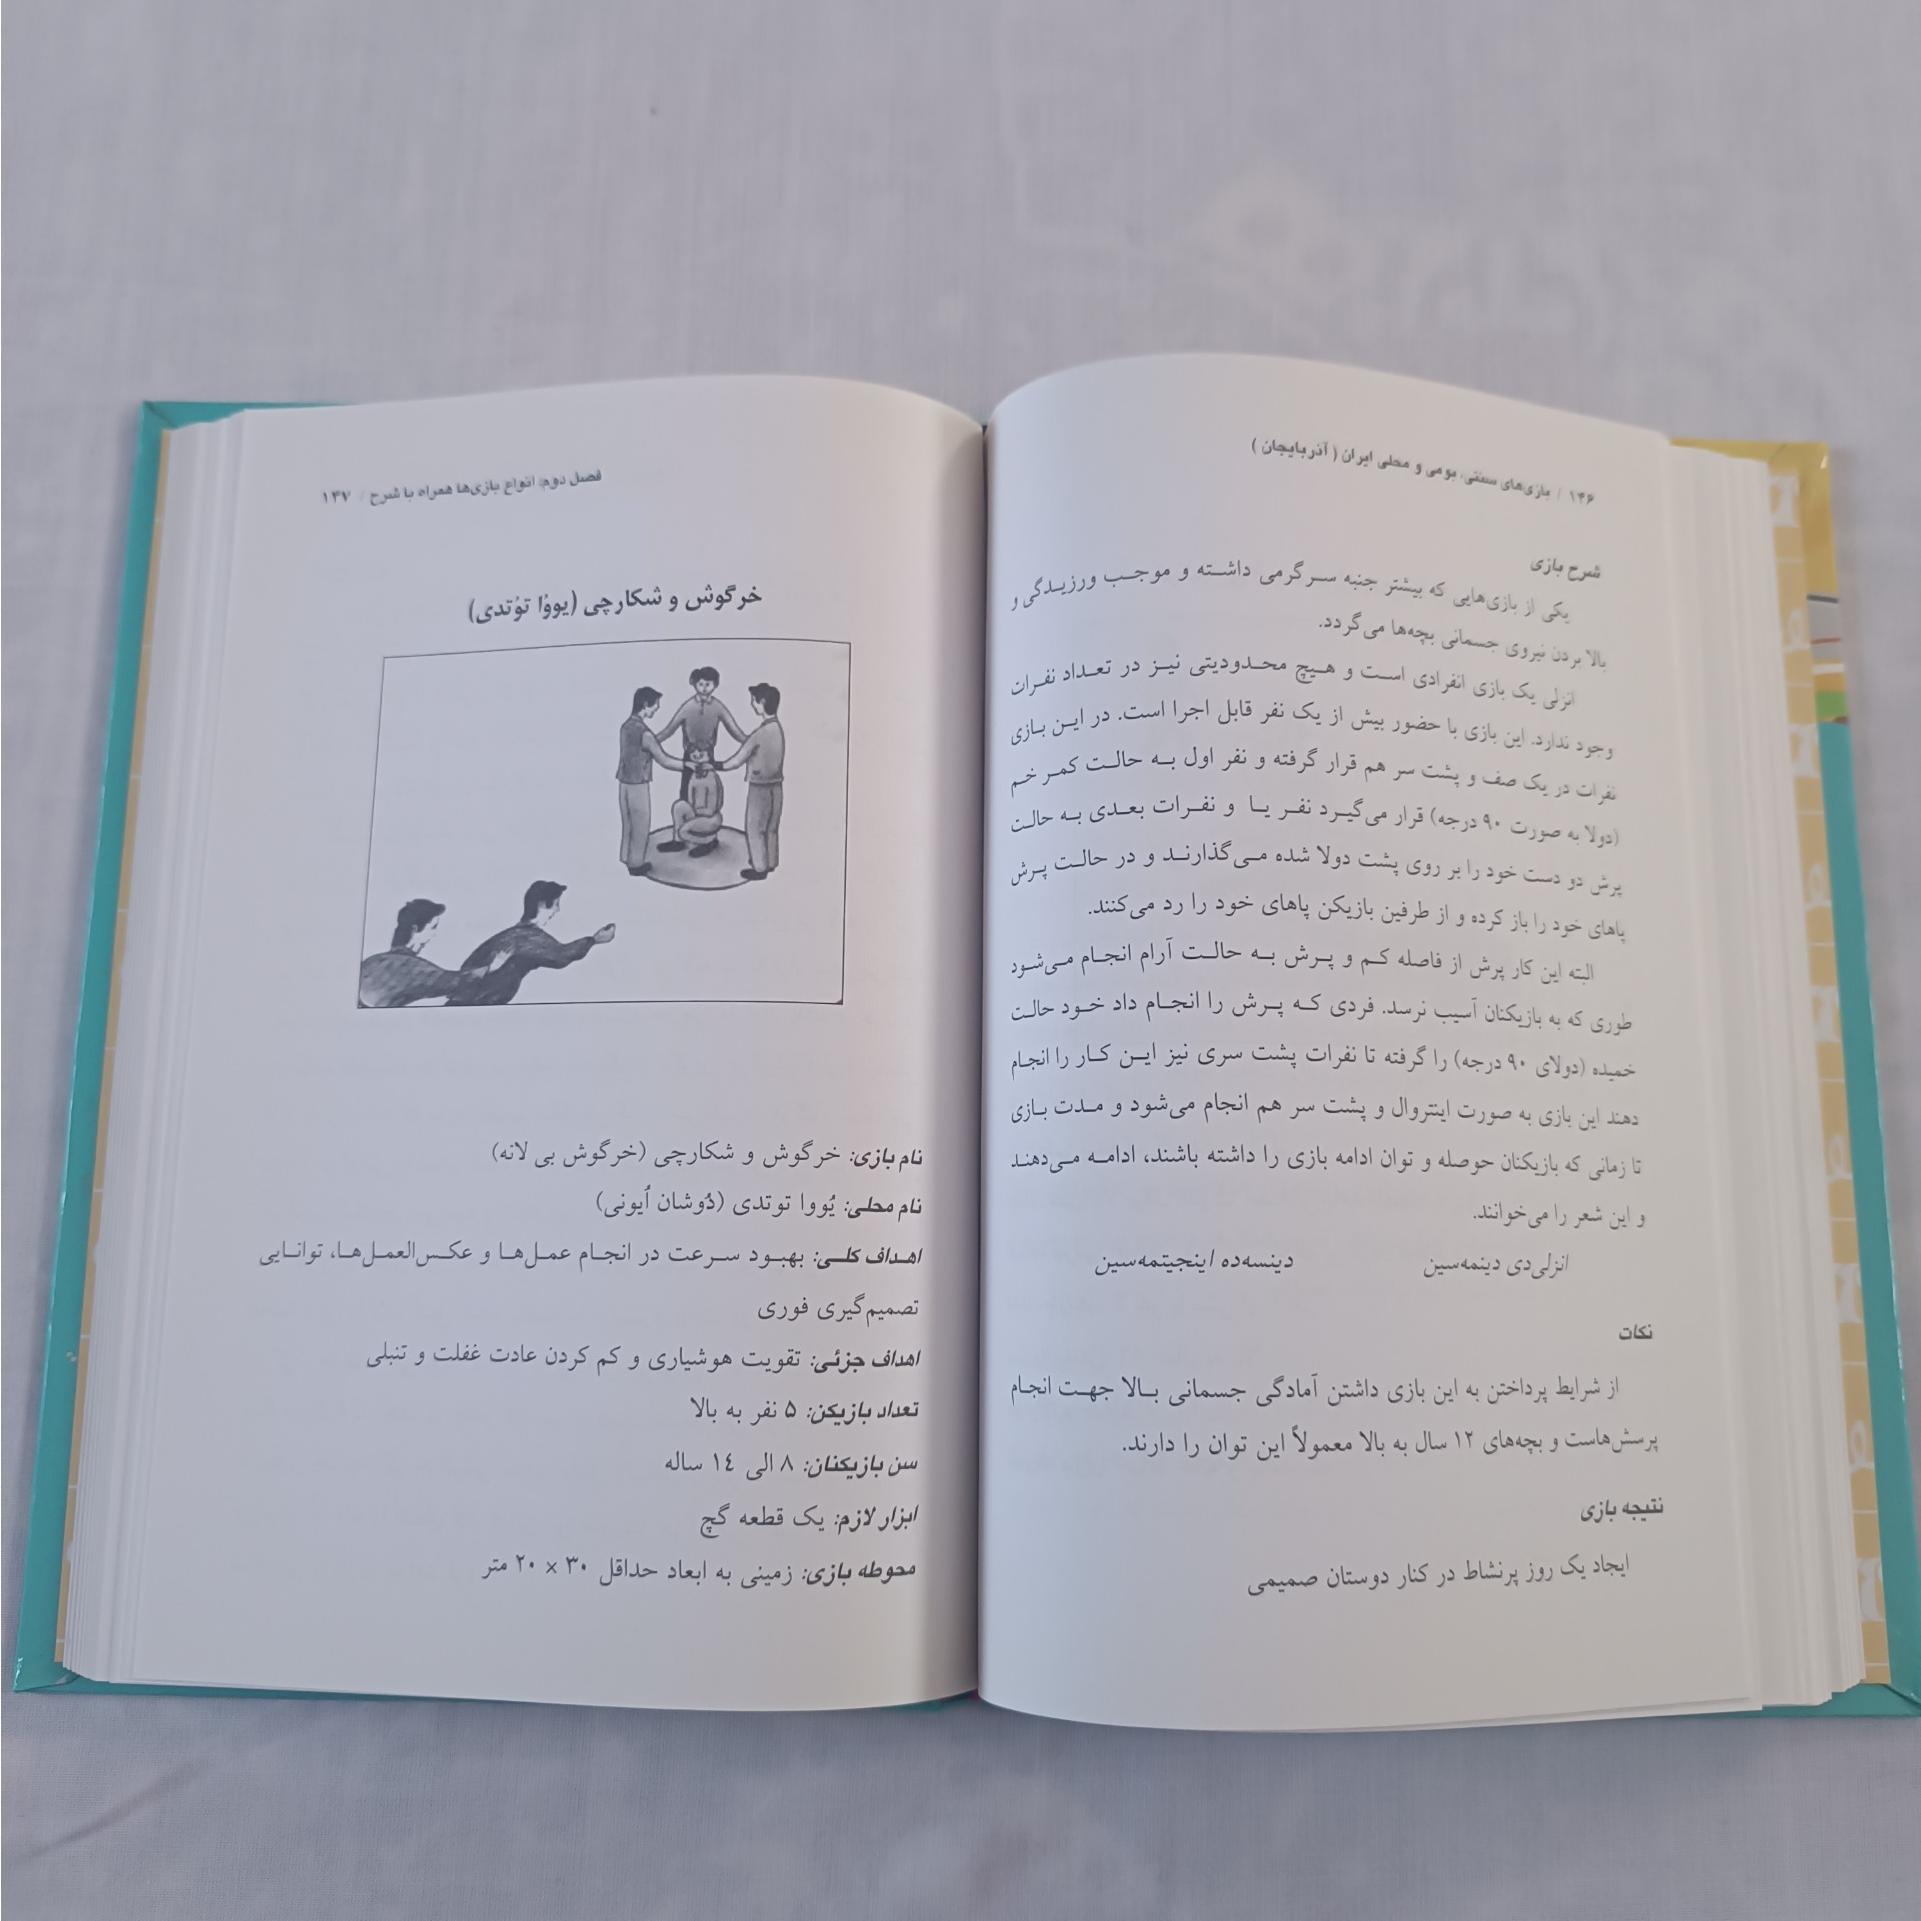 ۱۴۶ / بازی‌های سنتی، بومی و محلی ایران ( آذربایجان )
شرح بازی
یکی از بازی‌هایی که بیشتر جنبه سرگرمی داشته و موجب ورزیدگی و
بالا بردن نیروی جسمانی بچه‌ها می‌گردد.
انزلی یک بازی انفرادی است و هیچ محدودیتی نیز در تعداد نفرات
وجود ندارد. این بازی با حضور بیش از یک نفر قابل اجرا است. در این بازی
نفرات در یک صف و پشت سر هم قرار گرفته و نفر اول به حالت کمر خم
(دولا به صورت ۹۰ درجه) قرار می‌گیرد نفر یا و نفرات بعدی به حالت
پرش دو دست خود را بر روی پشت دولا شده می‌گذارند و در حالت پرش
پاهای خود را باز کرده و از طرفین بازیکن پاهای خود را رد می‌کنند.
البته این کار پرش از فاصله کم و پرش به حالت آرام انجام می‌شود
طوری که به بازیکنان آسیب نرسد. فردی که پرش را انجام داد خود حالت
خمیده (دولای ۹۰ درجه) را گرفته تا نفرات پشت سری نیز این کار را انجام
دهند این بازی به صورت اینتروال و پشت سر هم انجام می‌شود و مدت بازی
تا زمانی که بازیکنان حوصله و توان ادامه بازی را داشته باشند، ادامه می‌دهند
و این شعر را می‌خوانند.
انزلی‌دی دینمه‌سین دینسه‌ده اینجیتمه‌سین
نکات
از شرایط پرداختن به این بازی داشتن آمادگی جسمانی بالا جهت انجام
پرسش‌هاست و بچه‌های ۱۲ سال به بالا معمولاً این توان را دارند.
نتیجه بازی
ایجاد یک روز پرنشاط در کنار دوستان صمیمی
فصل دوم: انواع بازی‌ها همراه با شرح / ۱۴۷
خرگوش و شکارچی (یووُا توُتدی)
نام بازی: خرگوش و شکارچی (خرگوش بی لانه)
نام محلی: یُووا توتدی (دُوشان اُیونی)
اهداف کلی: بهبود سرعت در انجام عمل‌ها و عکس‌العمل‌ها، توانایی
تصمیم‌گیری فوری
اهداف جزئی: تقویت هوشیاری و کم کردن عادت غفلت و تنبلی
تعداد بازیکن: ۵ نفر به بالا
سن بازیکنان: ۸ الی ۱٤ ساله
ابزار لازم: یک قطعه گچ
محوطه بازی: زمینی به ابعاد حداقل ۳۰ × ۲۰ متر